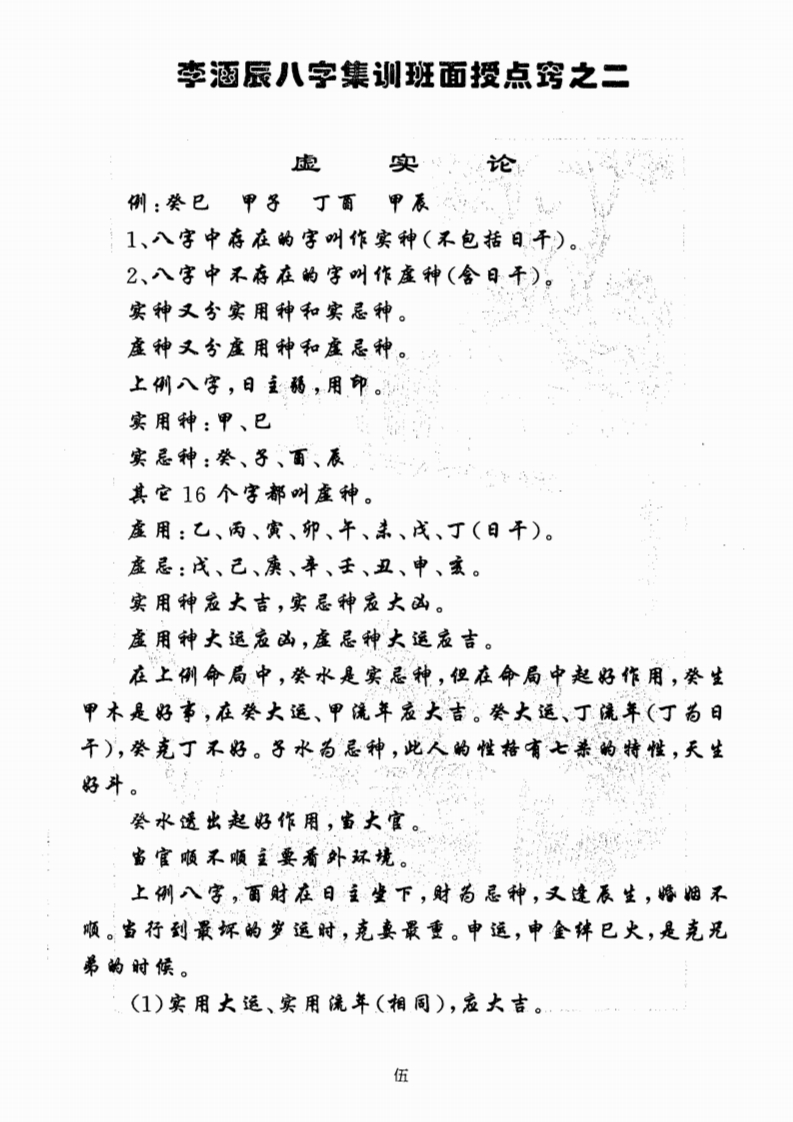 李涵辰八字集训班面授点窍之二
虚 实 论
例:癸巳 甲子 丁酉 甲辰
1、八字中存在的字叫作实神(不包括日干)。
2、八字中不存在的字叫作虚神(含日干)。
实神又分实用神和实忌神。
虚神又分虚用神和虚忌神。
上例八字,日主弱,用印。
实用神:甲、巳
实忌神:癸、子、酉、辰
其它16个字都叫虚神。
虚用:乙、丙、寅、卯、午、未、戊、丁(日干)。
虚忌:戊、己、庚、辛、壬、丑、申、亥。
实用神应大吉,实忌神应大凶。
虚用神大运应凶,虚忌神大运应吉。
在上例命局中,癸水是实忌神,但在命局中起好作用,癸生
甲木是好事,在癸大运、甲流年应大吉。癸大运、丁流年(丁为日
干),癸克丁不好。子水为忌神,此人的性格有七杀的特性,天生
好斗。
癸水透出起好作用,当大官。
当官顺不顺主要看外环境。
上例八字,酉财在日主坐下,财为忌神,又逢辰生,婚姻不
顺。当行到最坏的岁运时,克妻最重。申运,申金绊巳火,是克兄
弟的时候。
(1)实用大运、实用流年(相同),应大吉。
伍